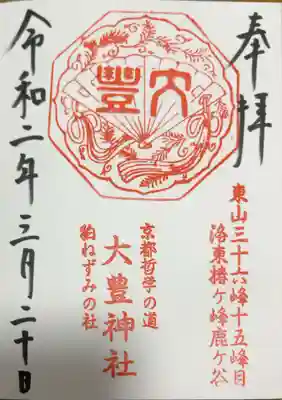 奉拝
大豊
東山三十六峰十五峰目
洛東椿ケ峰鹿ケ谷
京都哲学の道
大豊神社
狛ねずみの社
令和二年三月二十日